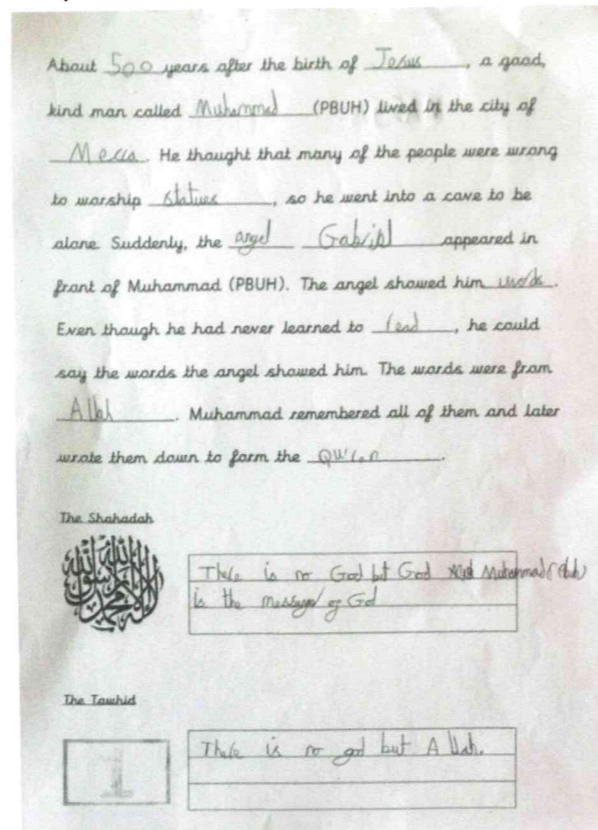 About 500 years after the birth of Jesus, a good,
kind man called Muhammad (PBUH) lived in the city of
Mecca. He thought that many of the people were wrong
to worship statues, so he went into a cave to be
alone. Suddenly, the angel Gabriel appeared in
front of Muhammad (PBUH). The angel showed him words.
Even though he had never learned to read, he could
say the words the angel showed him. The words were from
Allah. Muhammad remembered all of them and later
wrote them down to form the Quran.
The Shahadah
There is no God but God Muhammad (Pbuh)
is the messager of God
The Tawhid
1
There is no god but Allah.